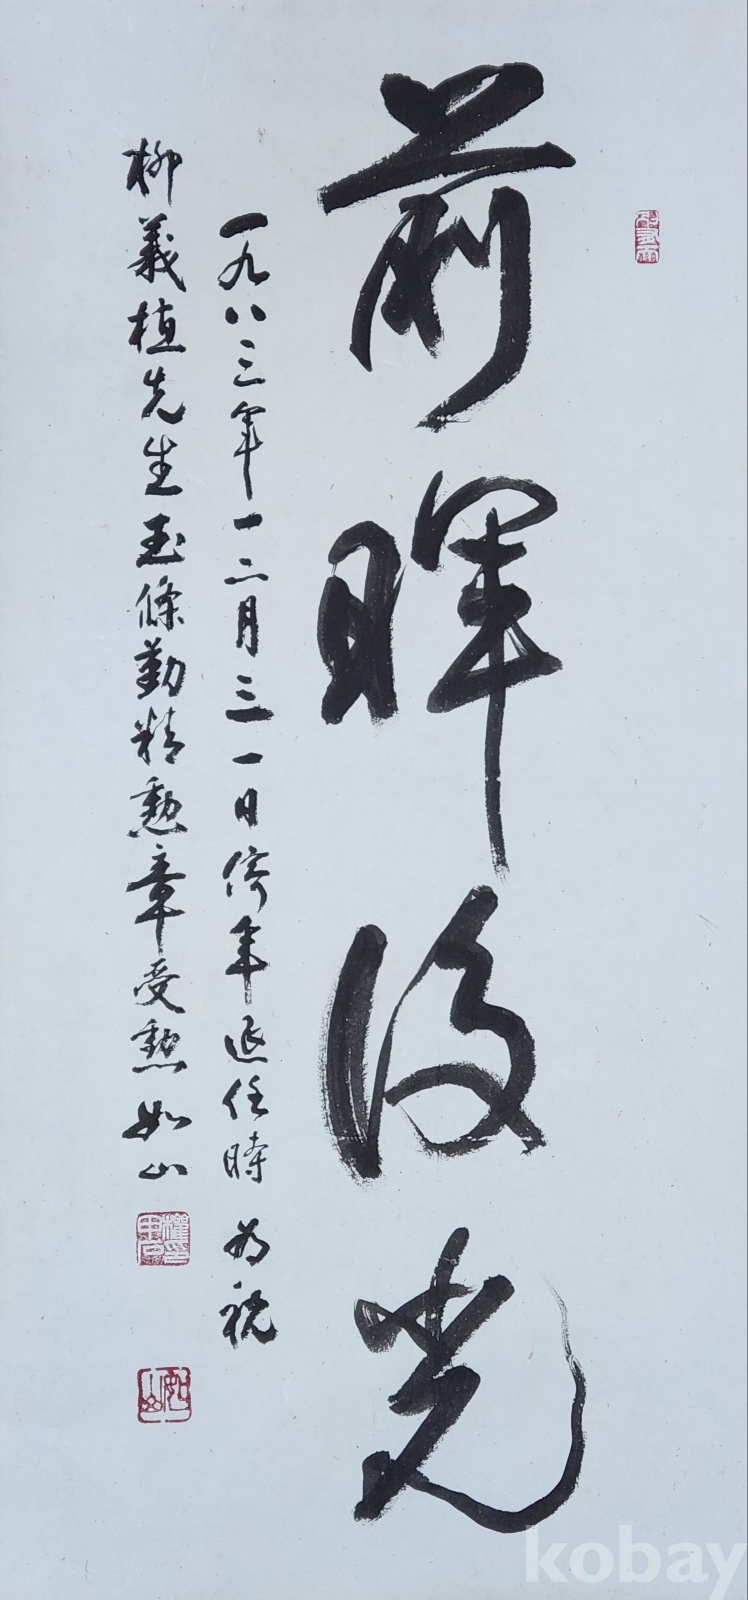 前暉後光
一九八三年一二月三一日停年退任時 为祝
柳義植先生玉條勤精勲章受勲 如山
如山
kobay